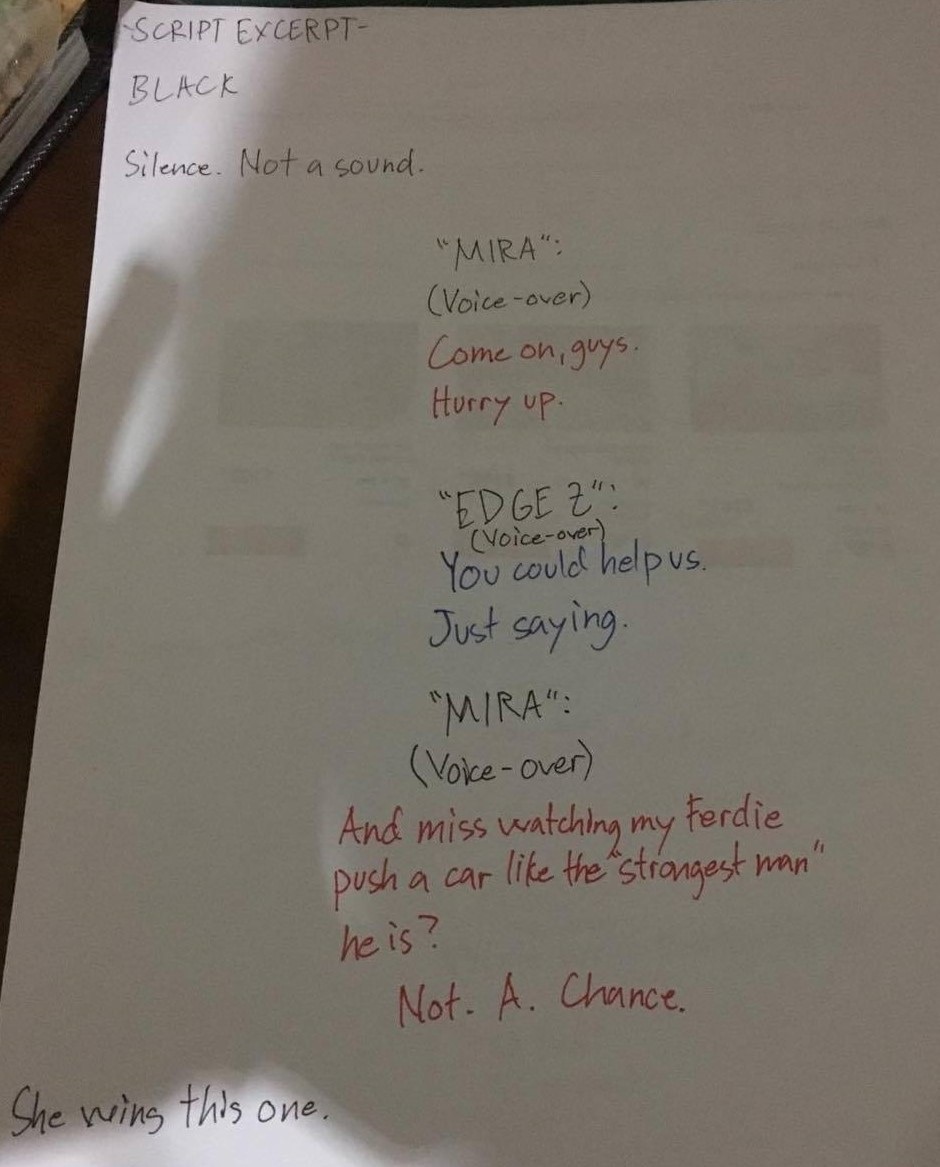 -SCRIPT EXCERPT-
BLACK
Silence. Not a sound.
"MIRA":
(Voice-over)
Come on, guys.
Hurry up.
"EDGE Z":
(Voice-over)
You could help us.
Just saying.
"MIRA":
(Voice-over)
And miss watching my Ferdie
push a car like the "strongest man"
he is?
Not. A. Chance.
She wins this one.